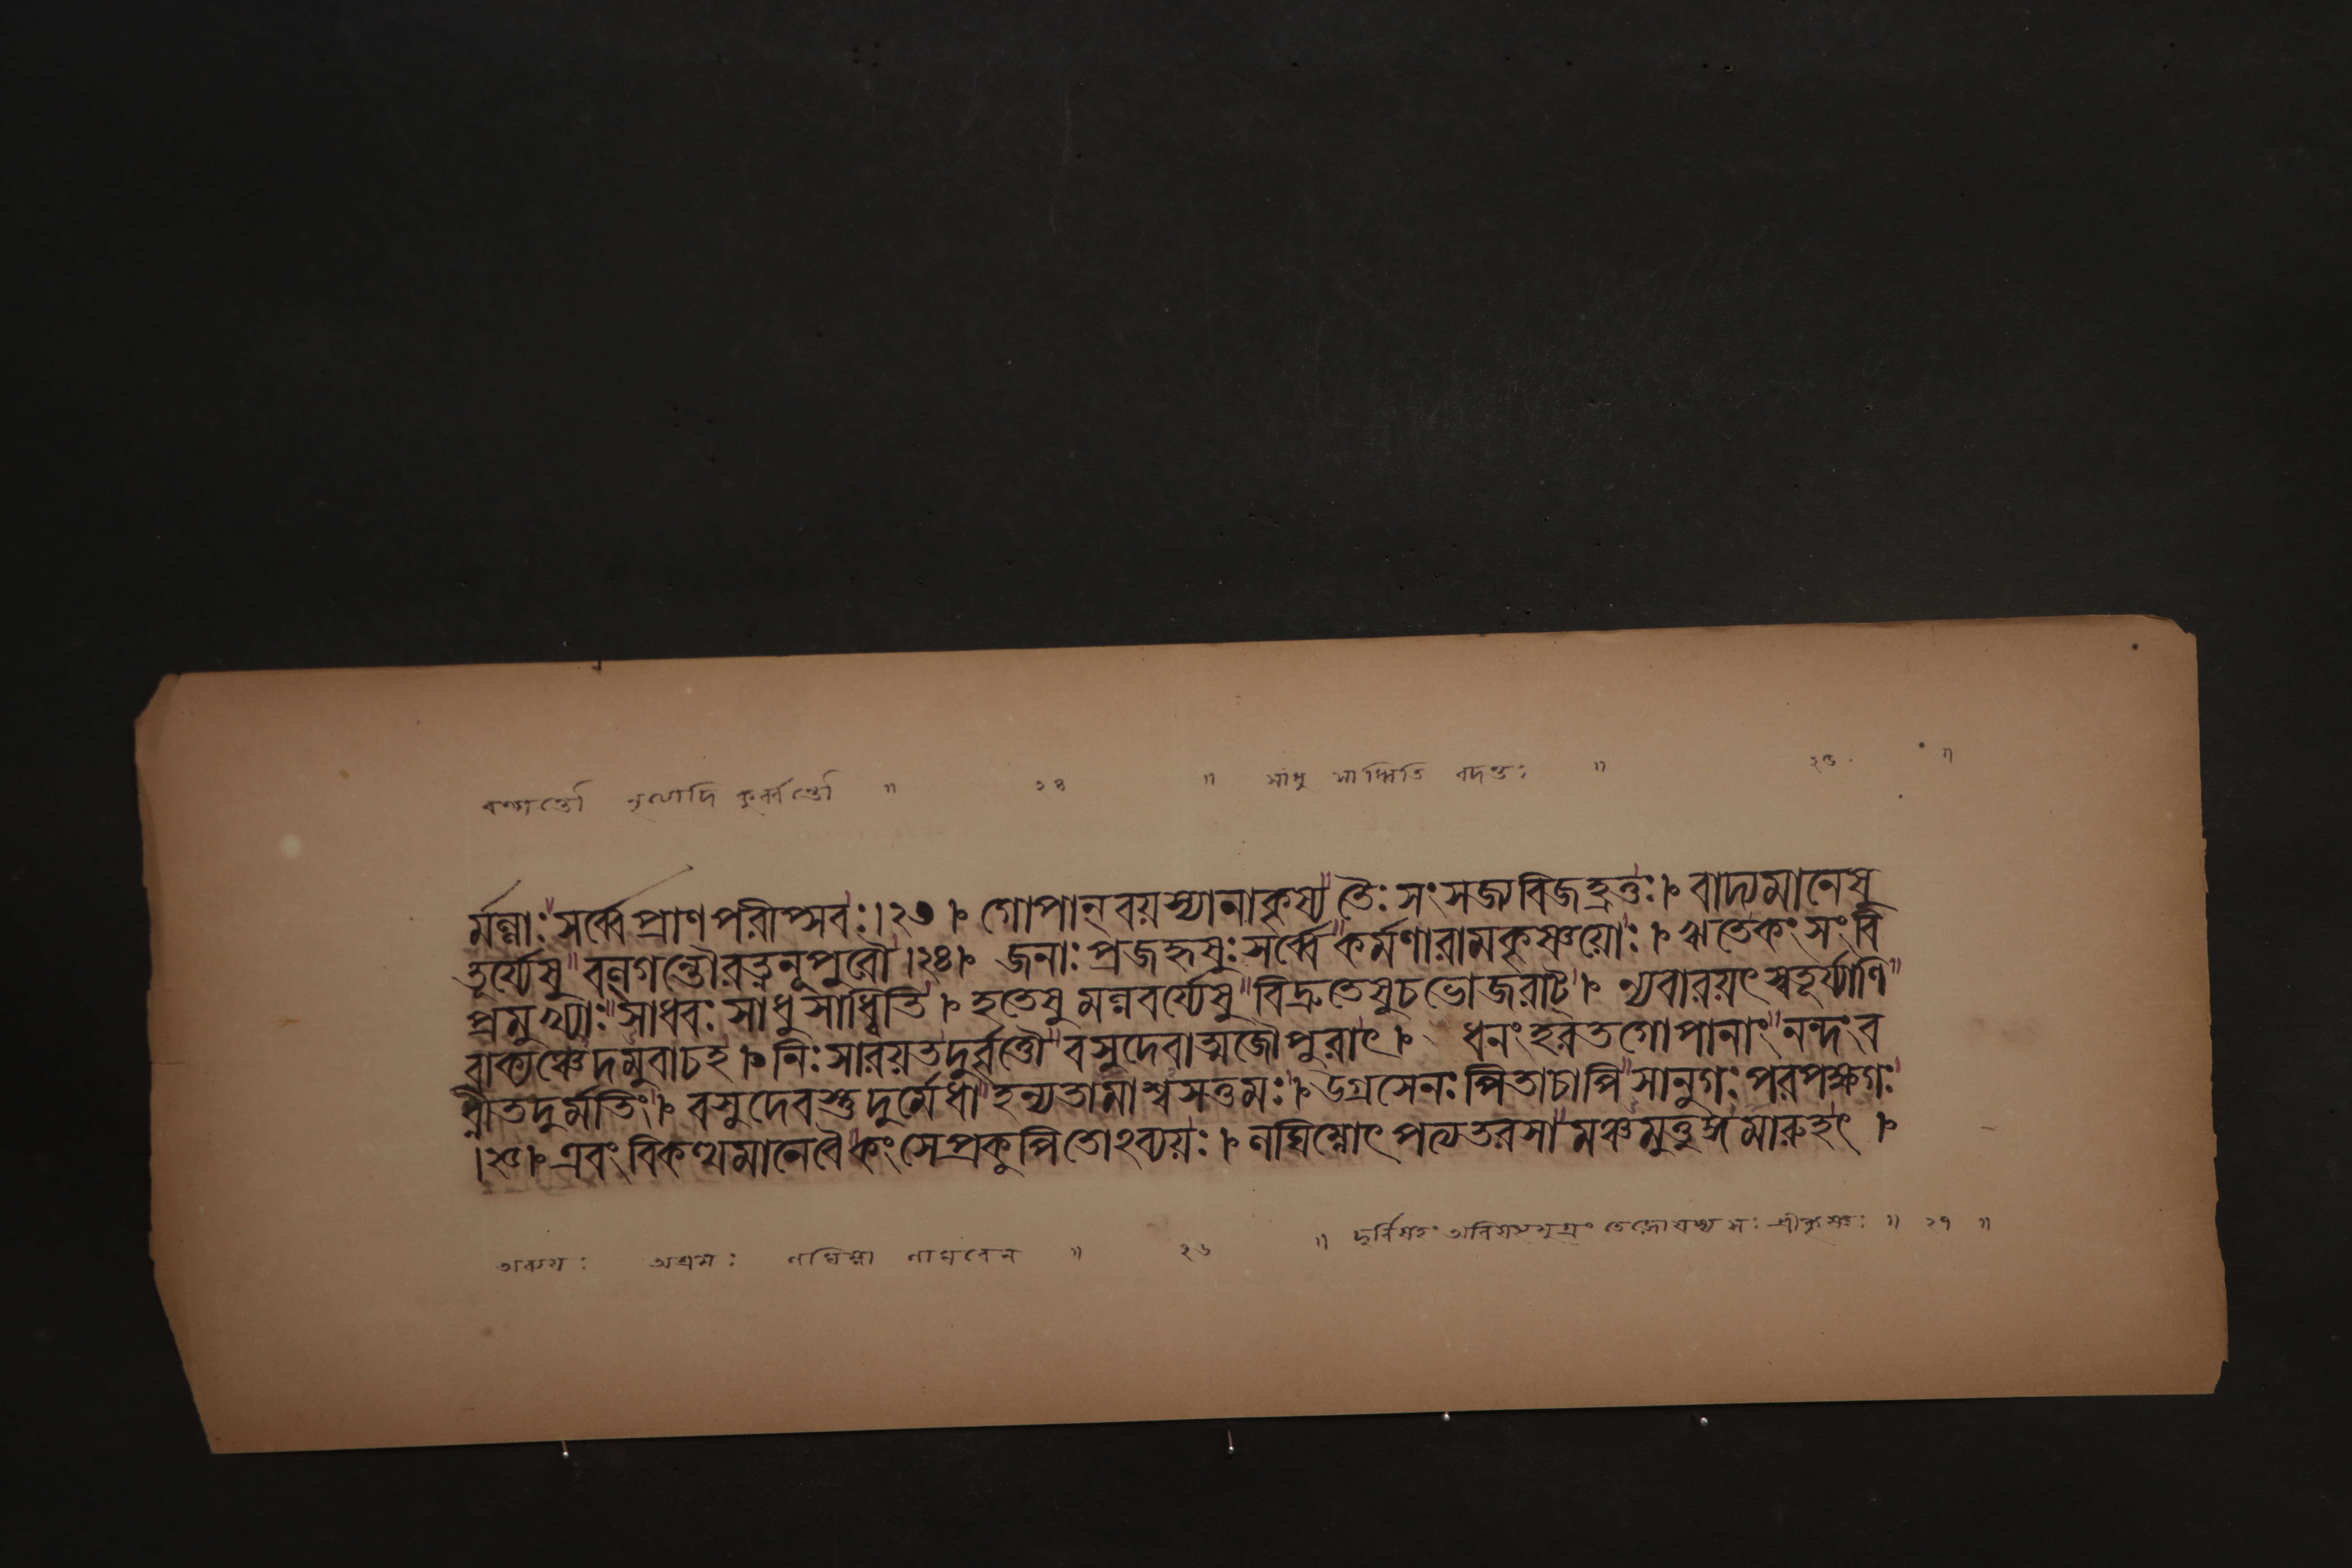 বল্গন্তৌ নৃত্যাদি কুর্ব্বন্তৌ ॥ ২৪ ॥ সাধু সাধ্বিতি বদন্তঃ ॥ ২৫ ॥
র্মল্লাঃ সর্ব্বে প্রাণপরীপ্সবঃ।২৩। গোপান্ বয়স্যানাকৃষ্য তৈঃ সংসজ্য বিজহ্রতুঃ। বাদ্যমানেষু
তূর্য্যেষু বল্গন্তৌ রত্ননূপুরৌ।২৪। জনাঃ প্রজহৃষুঃ সর্ব্বে কর্মণা রামকৃষ্ণয়োঃ। ঋতে কংসং বি
প্রমুখ্যাঃ সাধবঃ সাধুসাধ্বিতি। হতেষু মল্লবর্য্যেষু বিদ্রুতেষু চ ভোজরাট্। ন্যবারয়ৎ স্বতূর্য্যাণি
বাক্যঞ্চেদমুবাচহ। নিঃসারয়ত দুর্ব্বৃত্তৌ বসুদেবাত্মজৌ পুরাৎ। ধনং হরত গোপানাং নন্দং ব
ধ্নীত দুর্মতিং। বসুদেবস্তু দুর্মেধা হন্যতামাশ্বসত্তমঃ। উগ্রসেনঃ পিতাচাপি সানুগঃ পরপক্ষগঃ
।২৫। এবং বিকত্থমানে বৈ কংসে প্রকুপিতোঽব্যয়ঃ। লঘিম্নোৎপত্য তরসা মঞ্চমুত্তুঙ্গমারুহৎ।
অব্যয়ঃ অশ্রমঃ লঘিম্না লাঘবেন ॥ ২৬ ॥ দুর্বিষহঃ অবিষহ্যমুগ্রং তেজো যস্য সঃ শ্রীকৃষ্ণঃ ॥ ২৭ ॥